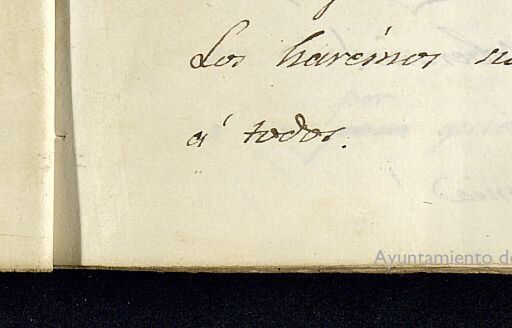 Los haremos
á todos.
Ayuntamiento de